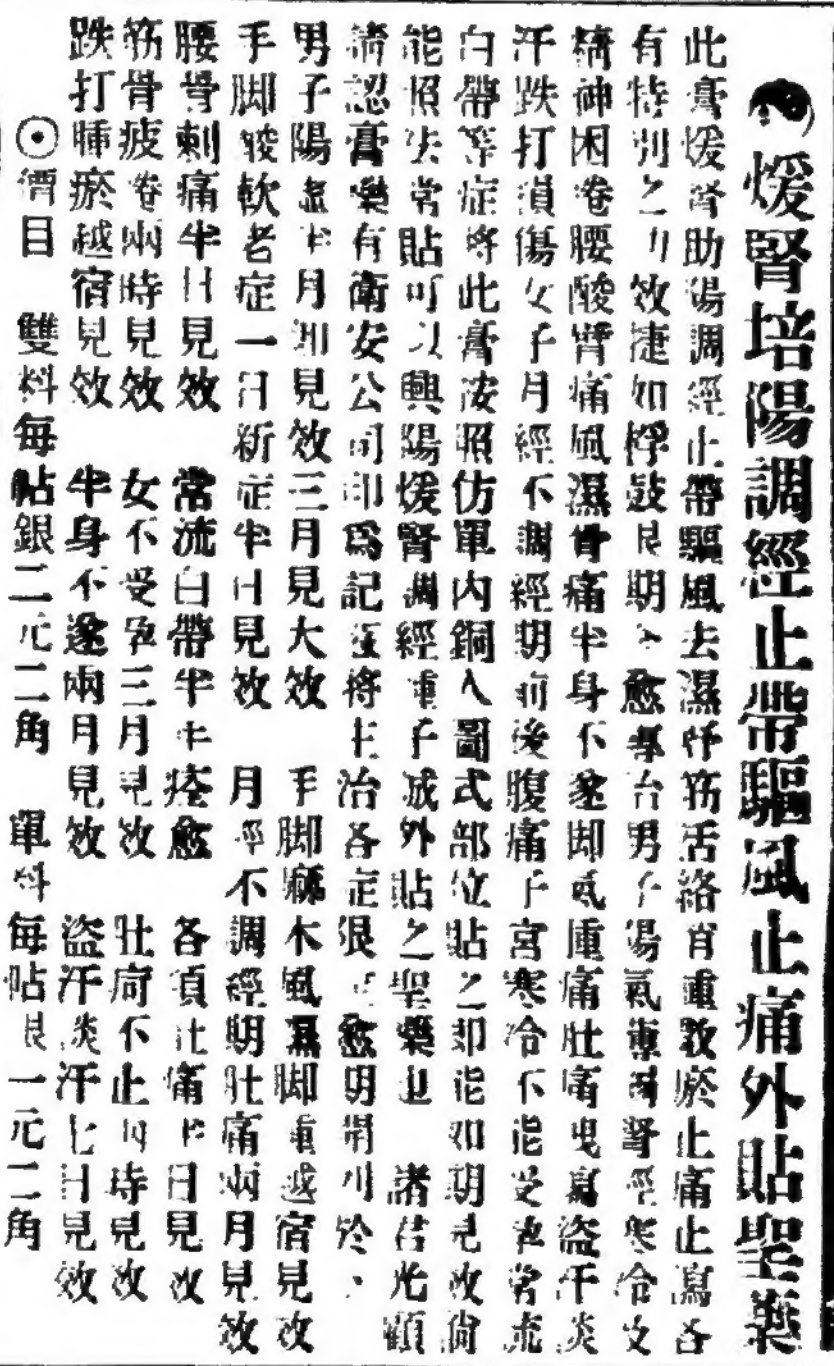 煖腎培陽調經止帶驅風止痛外貼聖藥
此膏煖腎助陽調經止帶驅風去濕舒筋活絡消腫散瘀止痛止瀉各
有特別之功效捷如桴鼓限期全愈專治男子陽氣衰弱腎經寒冷
精神困倦腰酸臂痛風濕骨痛半身不遂脚氣腫痛肚痛曳瀉盜汗痰
汗跌打損傷女子月經不調經期前後腹痛子宮寒冷不能受孕常流
白帶等症將此膏按照仿單內銅人圖式部位貼之卽能如期見效倘
能照法常貼可以興陽煖腎調經種子誠外貼之聖藥也 諸君光顧
請認膏藥有衛安公司印爲記茲將主治各症限愈期開列於
男子陽虛半月卽見效三月見大效 手脚麻木風濕脚腫越宿見效
手脚酸軟老症一日新症半日見效 月經不調經期肚痛兩月見效
腰骨刺痛半日見效 常流白帶半年痊愈 各項肚痛半日見效
筋骨疲倦兩時見效 女不受孕三月見效 肚疴不止四時見效
跌打腫瘀越宿見效 半身不遂兩月見效 盜汗痰汗七日見效
⊙價目 雙料每帖銀二元二角 單料每帖銀一元二角